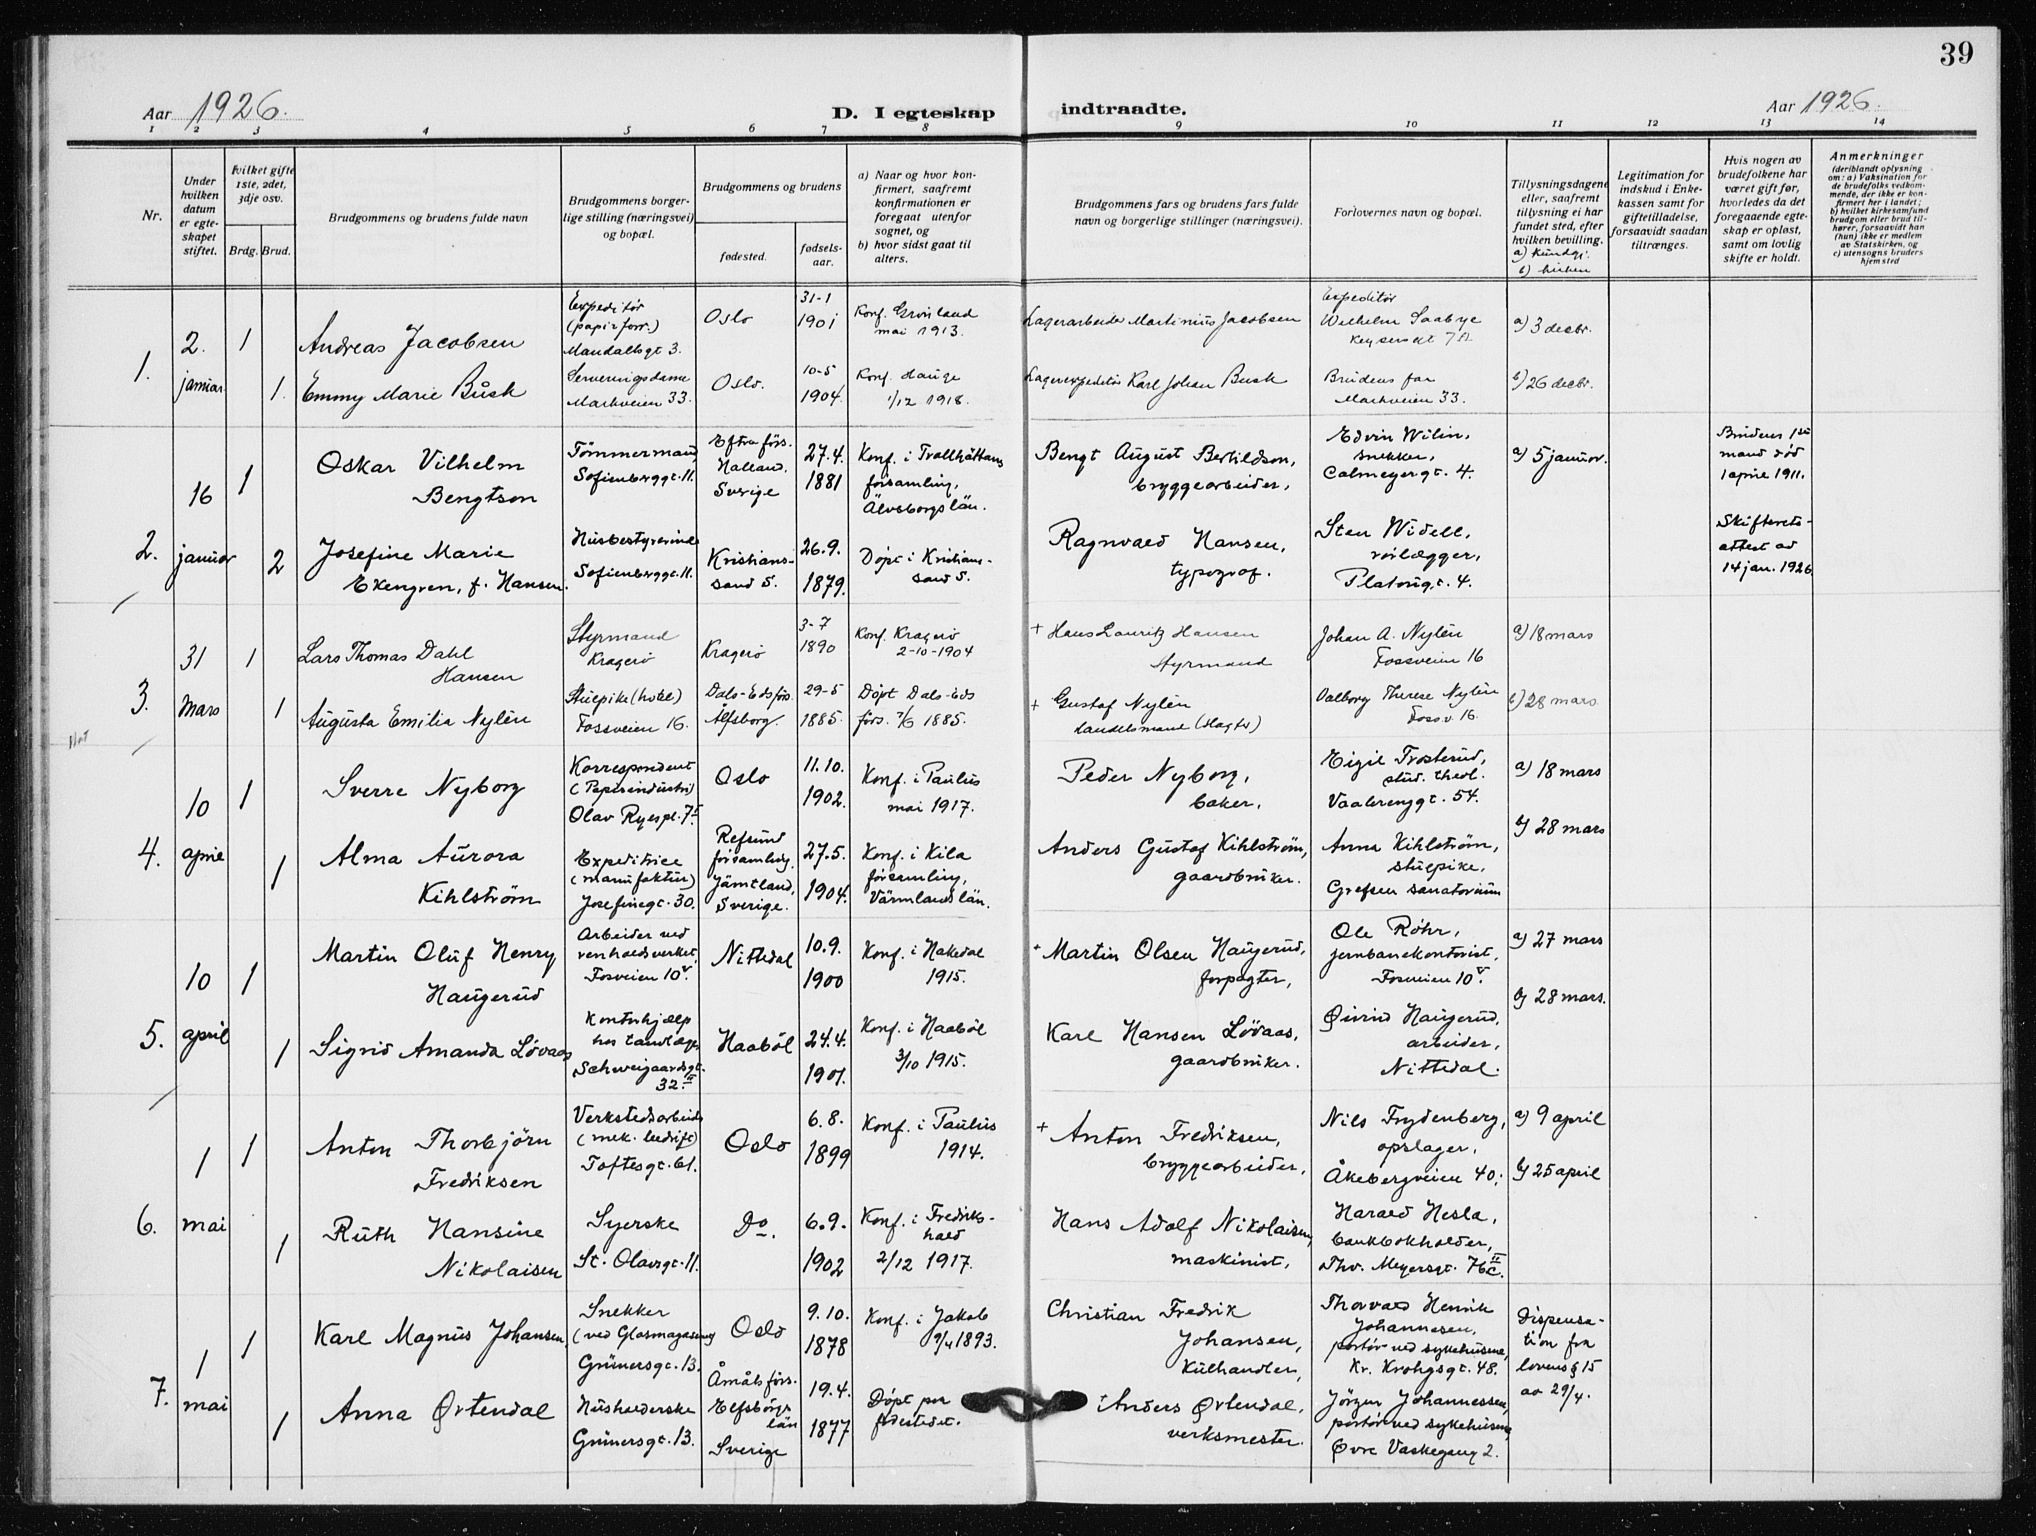 39
Aar 1926.
D. I egteskap indtraadte.
Aar 1926.
1 2 3 4 5 6 7 8 9 10 11 12 13 14
Nr.
Under hvilken datum er egteskapet stiftet.
Hvilket gifte 1ste, 2det, 3dje osv.
Brdg. Brud.
Brudgommens og brudens fulde navn
Brudgommens borgerlige stilling (næringsvei) og bopæl.
Brudgommens og brudens
fødested.
fødselsaar.
a) Naar og hvor konfirmert, saafremt konfirmationen er foregaat utenfor sognet, og
b) hvor sidst gaat til alters.
Brudgommens fars og brudens fars fulde navn og borgerlige stillinger (næringsvei).
Forlovernes navn og bopæl.
Tillysningsdagene eller, saafremt tillysning ei har fundet sted, efter hvilken bevilling.
a) Kundgj.
b) kirken
Legitimation for indskud i Enkekassen samt for giftetilladelse, forsaavidt saadan tiltrænges.
Hvis nogen av brudefolkene har været gift før, hvorledes da det foregaaende egteskap er opløst, samt om lovlig skifte er holdt.
Anmerkninger
(deriblandt oplysning om: a) Vaksination for de brudefolks vedkommende, der ikke er konfirmert her i landet; b) hvilket kirkesamfund brudgom eller brud tilhører, forsaavidt han (hun) ikke er medlem av Statskirken, og c) utensogns bruders hjemsted
1.
2. januar
1
Andreas Jacobsen
Expeditør
(papirforr.)
Mandallsgt 3.
Oslo
31-1
1901
Konf. Grønland
mai 1913.
Lagerarbeider Martinius Jacobsen
Expeditør
Wilhelm Saabye
Keysersgt 7A
a) 3 decbr.
1.
Emmy Marie Busk
Serveringsdame
Markveien 33.
Oslo.
10-5
1904.
Konf. Hauge
1/12 1918.
Lagerexpeditør Karl Johan Busk
Brudens far
Markveien 33.
b) 26 decbr.
2.
16 januar
1
Oskar Vilhelm
Bengtson
Tømmermand
Sofienberggt. 11.
Eftra förs.
Halland,
Sverige
27.4.
1881
Konf. i Trollhättans
församling,
Älvsborgs län.
Bengt August Bertildson,
bryggearbeider,
Edvin Wilin,
snekker,
Calmeyergt. 4.
a) 5 januar.
Brudens 1ste
mand død
1 april 1911.
2
Josefine Marie
Ekengren, f. Hansen.
Husbestyrerinde
Sofienberggt. 11.
Kristianssand S.
26.9.
1879.
Døpt i Kristianssand S.
Ragnvald Hansen,
typograf.
Sten Widell,
rørlægger,
Platousgt. 4.
Skifteretsattest av
14 jan. 1926.
3.
31 Mars
1
Lars Thomas Dahl
Hansen
Styrmand
Kragerø
Kragerø
3-7
1890
Konf. Kragerø
2-10-1904
+ Hans Lauritz Hansen
styrmand
Johan A. Nylén
Fossveien 16
a) 18 mars
1
Augusta Emilia Nylén
Stuepike (hotel)
Fossveien 16.
Dals-Eds förs.
Älfsborg.
29-5
1885.
Döpt Dals-Eds
förs. 7/6 1885.
+ Gustaf Nylén
Landelsmand
Valborg Therese Nylén
Fossv. 16.
b) 28 mars
4.
10 april
1
Sverre Nyborg
Korrespondent
(Papirindustri)
Olav Ryespl. 7
Oslo
11.10.
1902.
Konf. i Paulus
mai 1917.
Peder Nyborg,
baker,
Eigil Trosterud,
stud. theol.
Vaalerenggt. 54.
a) 18 mars
1
Alma Aurora
Kihlström
Expeditrice
(manufaktur)
Josefinegt. 30.
Refsund
församling.
Jämtland,
Sverige.
27.5.
1904.
Konf. i Kila
församling,
Värmlands län.
Anders Gustaf Kihlström,
gaardbruker.
Anna Kihlström,
stuepike.
Grefsen sanatorium
b) 28 mars
5.
10 april
1
Martin Oluf Henry
Haugerud
Arbeider ved
renholdsverket,
Fosveien 10 V.
Nittedal
10.9.
1900
Konf. i Hakedal
1915.
+ Martin Olsen Haugerud,
forpagter,
Ole Røhr,
jernbanekontorist,
Fosveien 10 V.
a) 27 mars
1
Sigrid Amanda Lövaas
Kontorhjælp
hos tandlæge
Schweigaardsgt.
32 II
Haaböl
24.4.
1901.
Konf. i Haaböl
3/10 1915.
Karl Hansen Lövaas,
gaardbruker.
Øivind Haugerud,
arbeider,
Nittedal.
b) 28 mars.
6.
1 mai
1
Anton Thorbjörn
Fredriksen
Verkstedsarbeider
(mek. bedrift)
Toftesgt. 61.
Oslo
6.8.
1899
Konf. i Paulus
1914.
+ Anton Fredriksen,
bryggearbeider,
Nils Frydenberg,
opslager,
Åkebergveien 40;
a) 9 april
1
Ruth Hansine
Nikolaisen
Syerske
St. Olavsgt. 11.
Do.
6.9.
1902
Konf. i Fredrikshald
2/12 1917.
Hans Adolf Nikolaisen,
maskinist,
Harald Hesla,
bankbokholder,
Thv. Meyersgt. 76 II c.
b) 25 april
7.
1 mai
1
Karl Magnus Johansen,
Snekker
(ved Glasmagasinet)
Grünersgt. 13.
Oslo
9.10.
1878
Konf. i Jakob
9/4 1893.
Christian Fredrik
Johansen,
kulhandler,
Thorvald Henrik
Johannesen,
portør ved sykehusene,
Kr. Krohgsgt. 48.
Dispensation fra
lovens § 15
av 29/4.
1
Anna Ørtendal
Husholderske
Grünersgt. 13.
Åmåls förs.
Elfsborgs
län
Sverige
19.4.
1877
Døpt paa
fødestedet.
+ Anders Ørtendal,
verksmester.
Jörgen Johannessen,
portør ved sykehusene
Øvre Vaskegang 2.